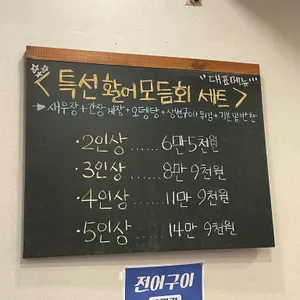 "대표메뉴"
<특선 활어모듬회 세트>
새우장+간장게장+오뎅탕+생선구이+튀김+기본밑반찬
·2인상 ...... 6만 5천원
·3인상 ...... 8만 9천원
·4인상 ...... 11만 9천원
·5인상 ...... 14만 9천원
전어구이